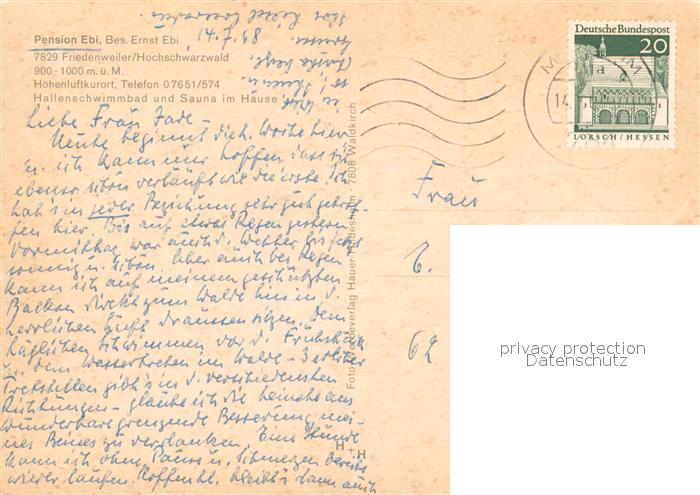 Pension Ebi, Bes. Ernst Ebi
7829 Friedenweiler/Hochschwarzwald
900 - 1000 m. ü. M.
Höhenluftkurort, Telefon 07651/574
Hallenschwimmbad und Sauna im Hause
14.7.68
Liebe Frau
Heute beginnt die II. Woche hier
u. ich kann nur hoffen dass sie
ebenso schön verläuft wie die erste. Ich
hab's in jeder Beziehung sehr gut getrof-
fen hier. Bis auf etwas Regen gestern
Vormittag war auch d. Wetter bis jetzt
sonnig u. schön. Aber auch bei Regen
kann ich auf meinem geschützten
Balkon direkt zum Walde hin in d.
herrlichen Luft draussen sitzen. Dem
täglichen Schwimmen vor d. Frühstück
u. dem Wassertreten im Walde - 3
Tretstellen gibt's in d. verschiedensten
Richtungen - glaube ich die beinahe ans
Wunderbare grenzende Besserung mei-
nes Beines zu verdanken. Eine Stunde
kann ich ohne Pause u. Schmerzen bereits
wieder laufen. Hoffentl. bleibt's dann auch
Foto Hauer 7808 Waldkirch
H + H
Deutsche Bundespost
20
LORSCH / HESSEN
14.
Frau
6.
62
privacy protection
Datenschutz